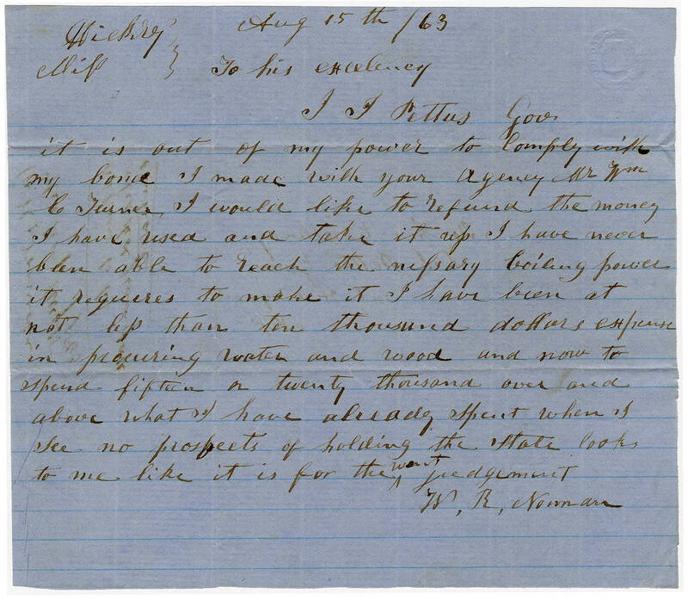 Hickry Aug 15th /63
Miss } To his excelency
J J Pettus Gov
it is out of my power to Comply with
my bond I made with your Agency Mr Wm
C Turner, I would like to refund the money
I have used and take it up I have never
been able to reach the nessary boiling power
it requeres to make it I have been at
not less than ten thousand dollars expense
in procuring water and wood and now to
spend fifteen or twenty thousand over and
above what I have already spent when I
see no prospects of holding the state looks
to me like it is for the want judgement
W, R, Norman